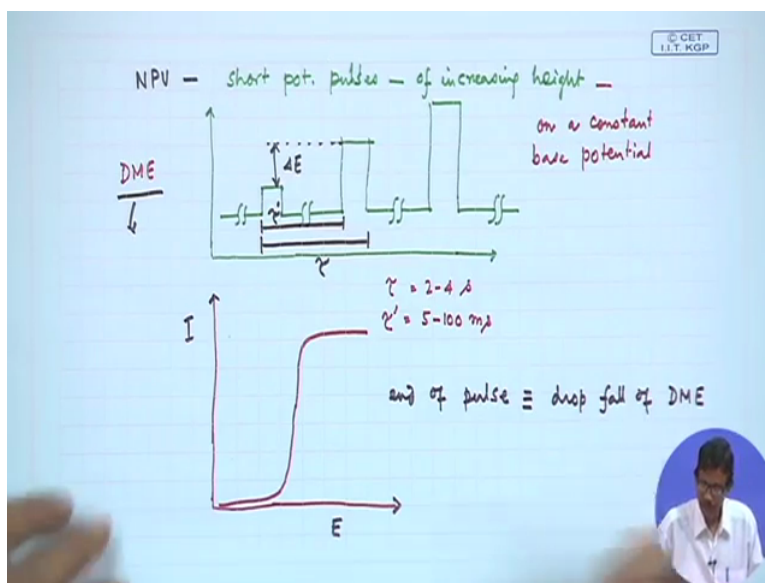 © CET
I.I.T. KGP
NPV – short pot. pulses – of increasing height –
on a constant
base potential
DME
ΔE
τ'
τ
τ = 2-4 s
τ' = 5-100 ms
I
end of pulse ≡ drop fall of DME
E